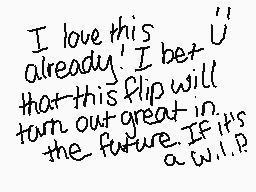 I love this
already! I bet Ü
that this flip will
turn out great in
the future. If it's
a W.I.P.